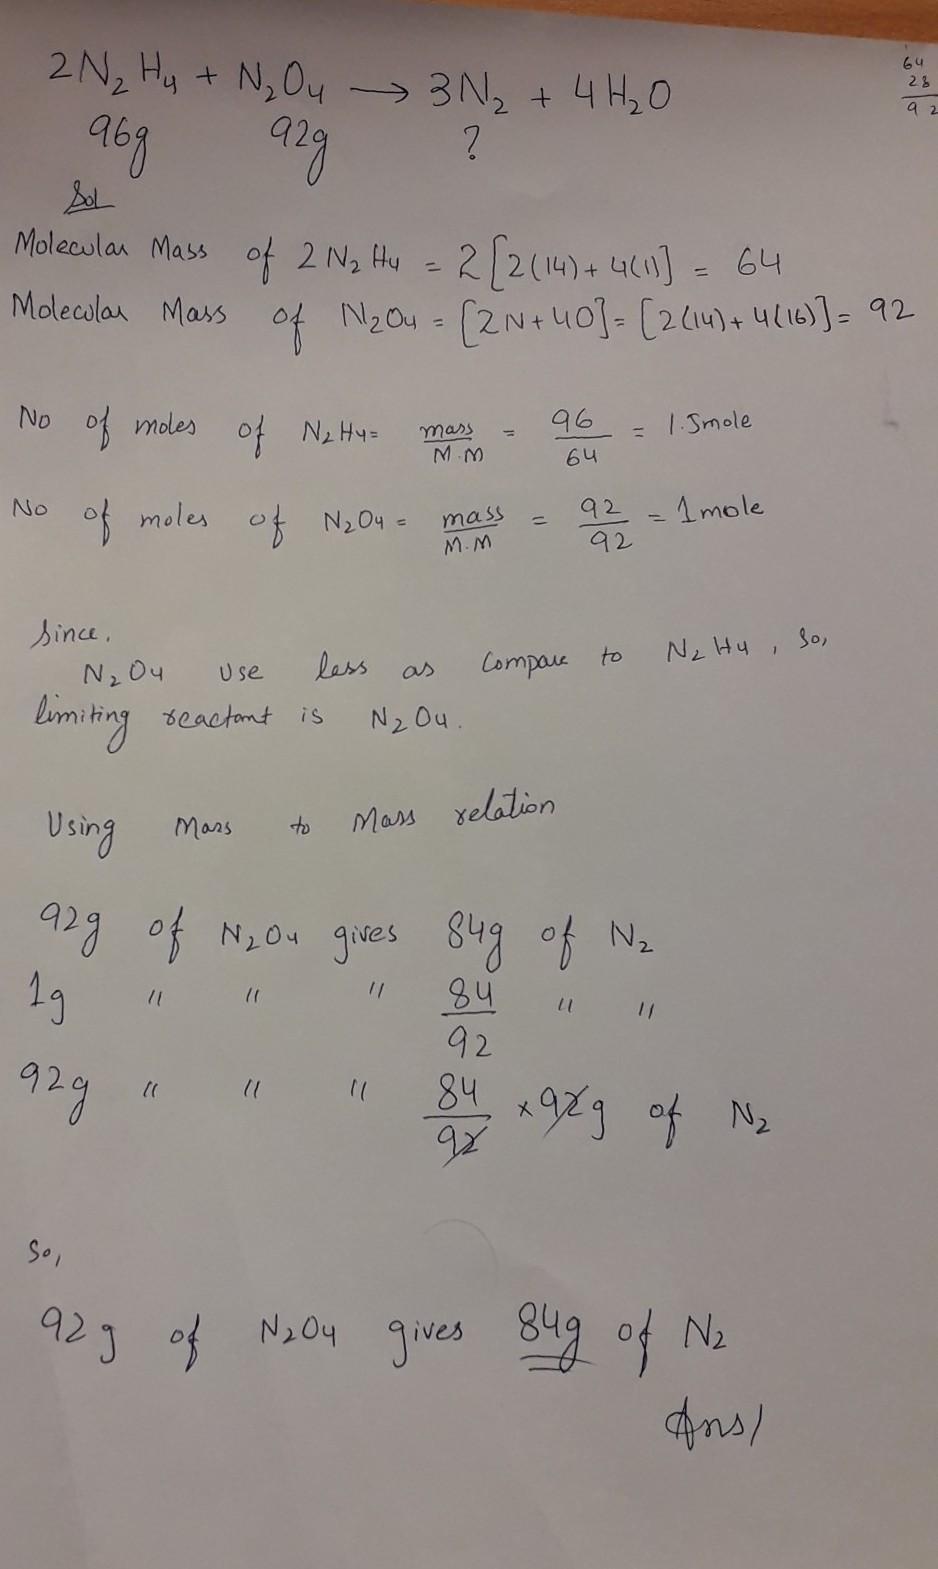 2N₂H₄ + N₂O₄ → 3N₂ + 4H₂O
96g 92g ?
64
28
92
Sol
Molecular Mass of 2N₂H₄ = 2[2(14)+4(1)] = 64
Molecular Mass of N₂O₄ = [2N+4O] = [2(14)+4(16)] = 92
No of moles of N₂H₄ = mass/M.M = 96/64 = 1.5mole
No of moles of N₂O₄ = mass/M.M = 92/92 = 1mole
Since,
N₂O₄ use less as compare to N₂H₄, so,
limiting reactant is N₂O₄.
Using Mass to Mass relation
92g of N₂O₄ gives 84g of N₂
1g " " " 84/92 " "
92g " " " 84/92 × 92g of N₂
So,
92g of N₂O₄ gives 84g of N₂
Ans/